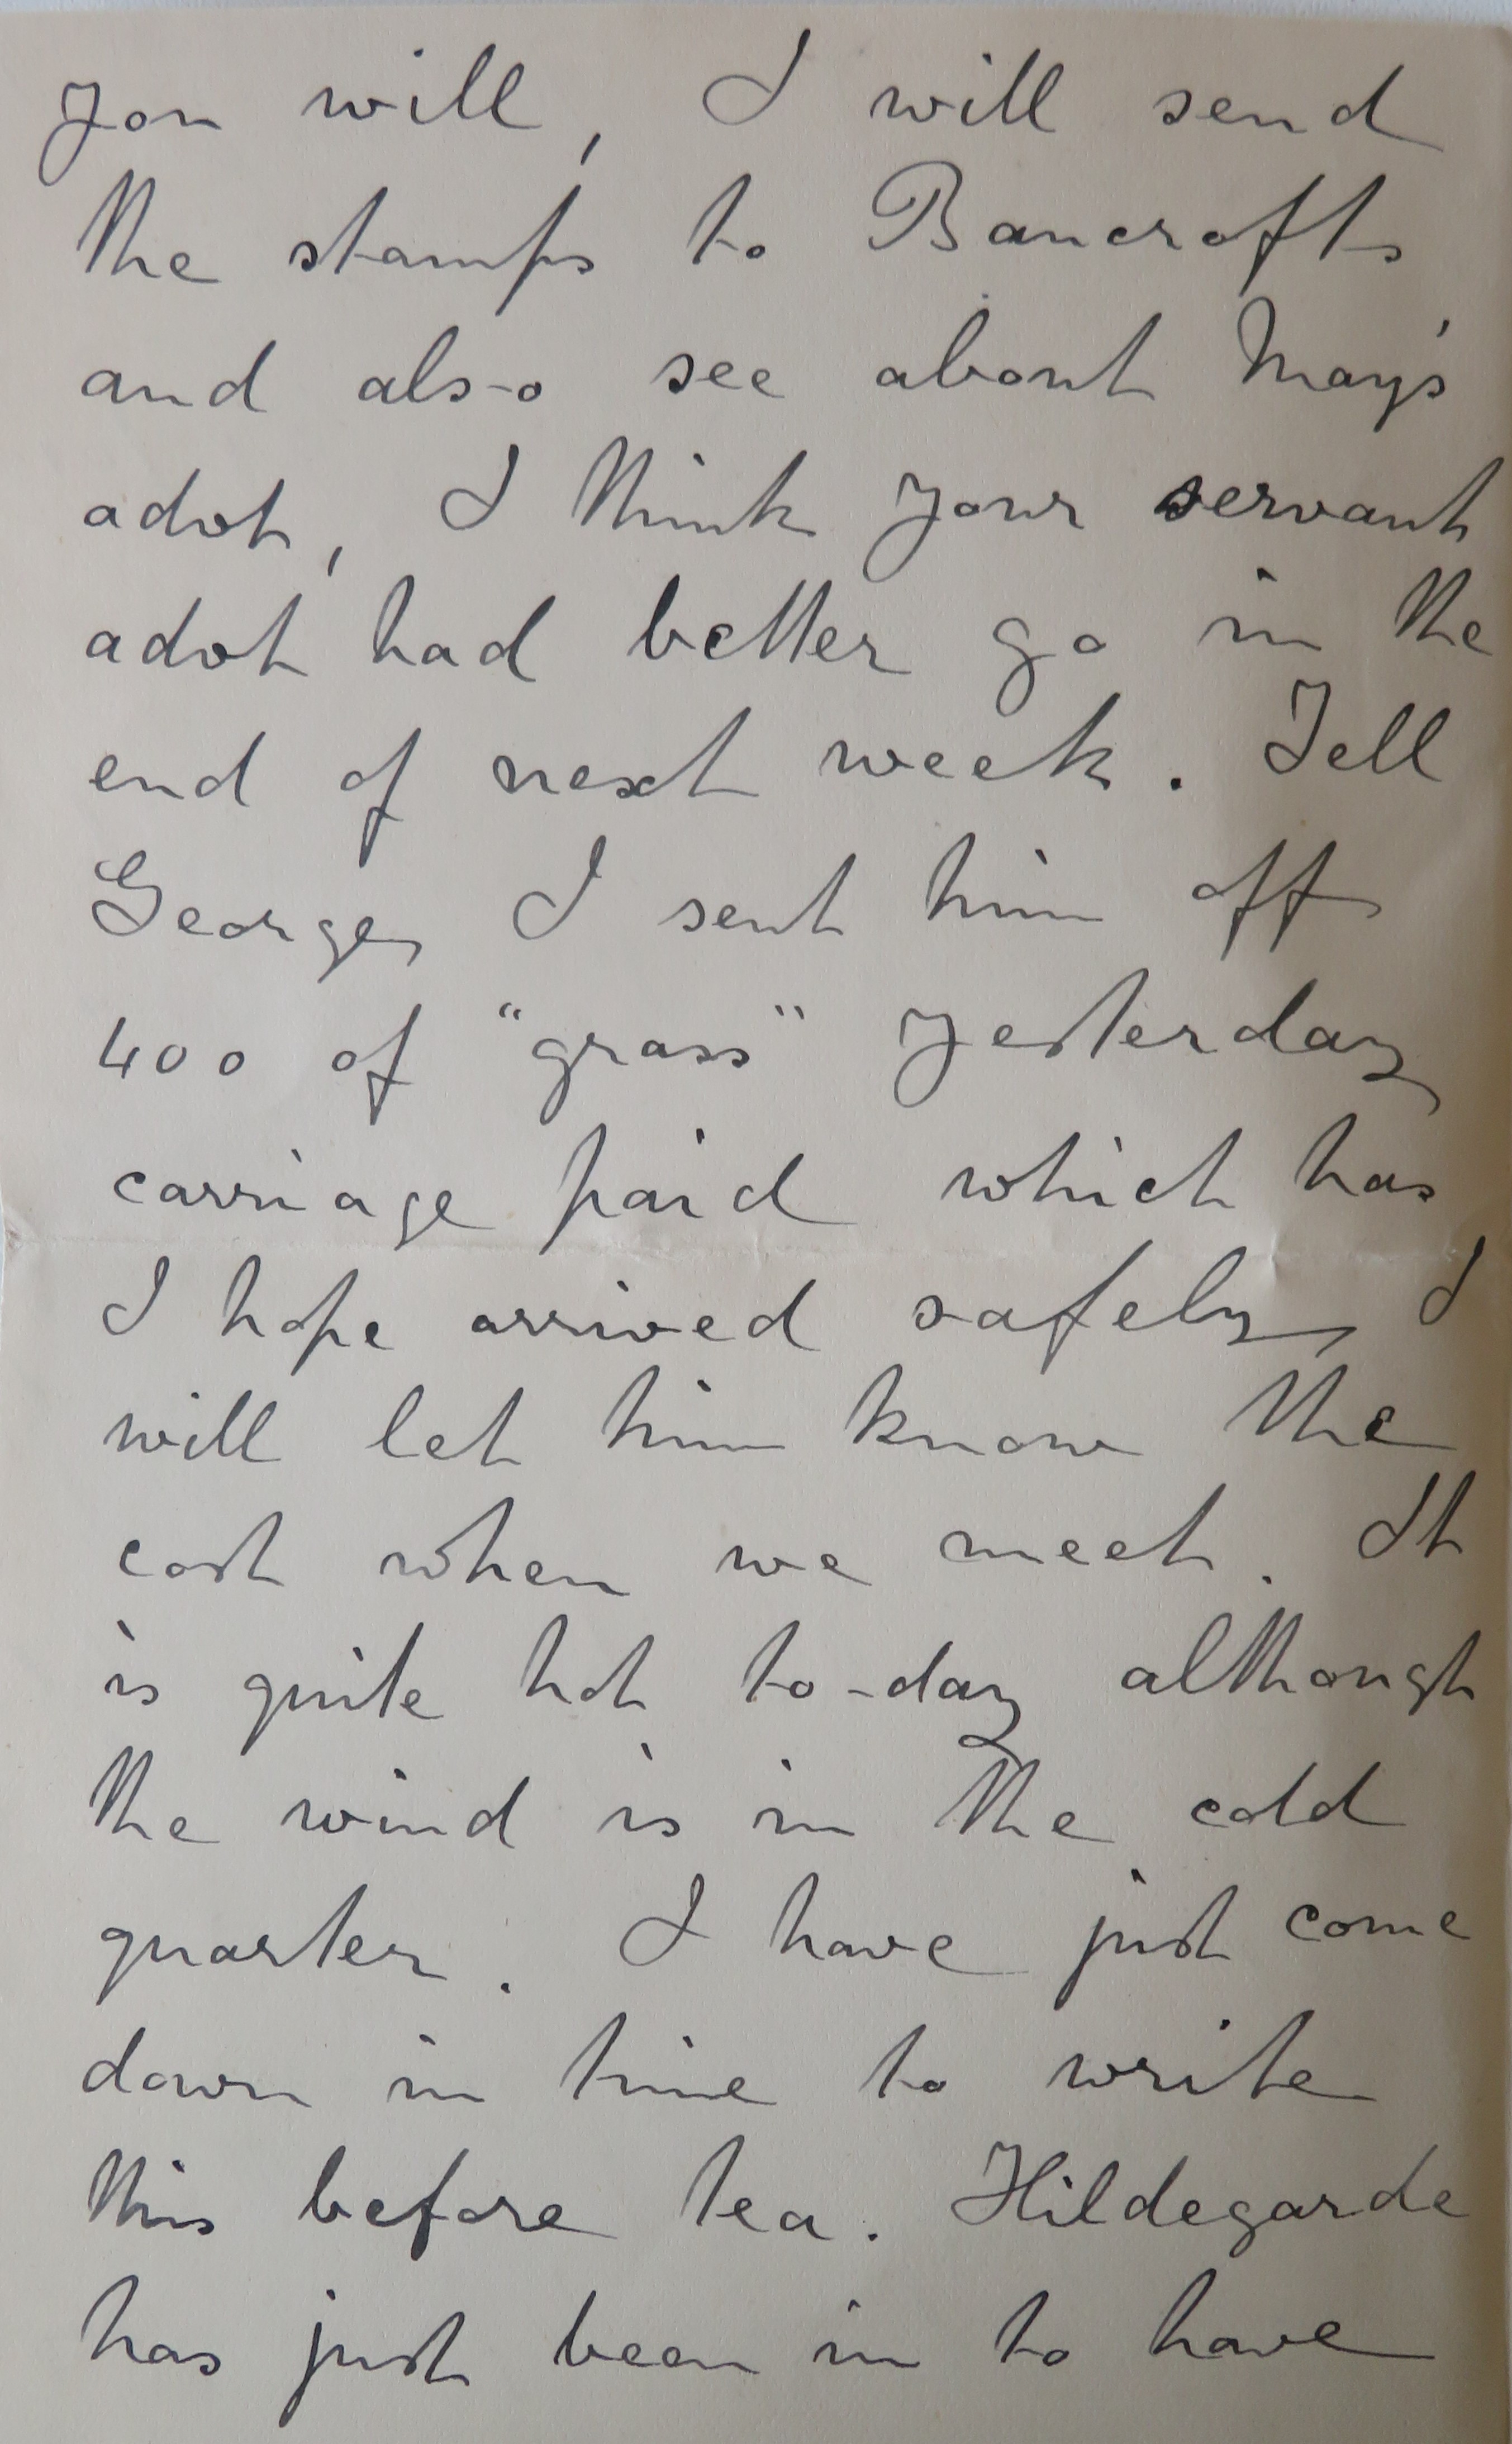 you will, I will send
the stamps to Bancrofts
and also see about May's
advt, I think your servant
advt had better go in the
end of next week. Tell
George, I sent him off
400 of "grass" yesterday
carriage paid which has
I hope arrived safely, I
will let him know the
cost when we meet. It
is quite hot to-day although
the wind is in the cold
quarter. I have just come
down in time to write
this before tea. Hildegarde
has just been in to have